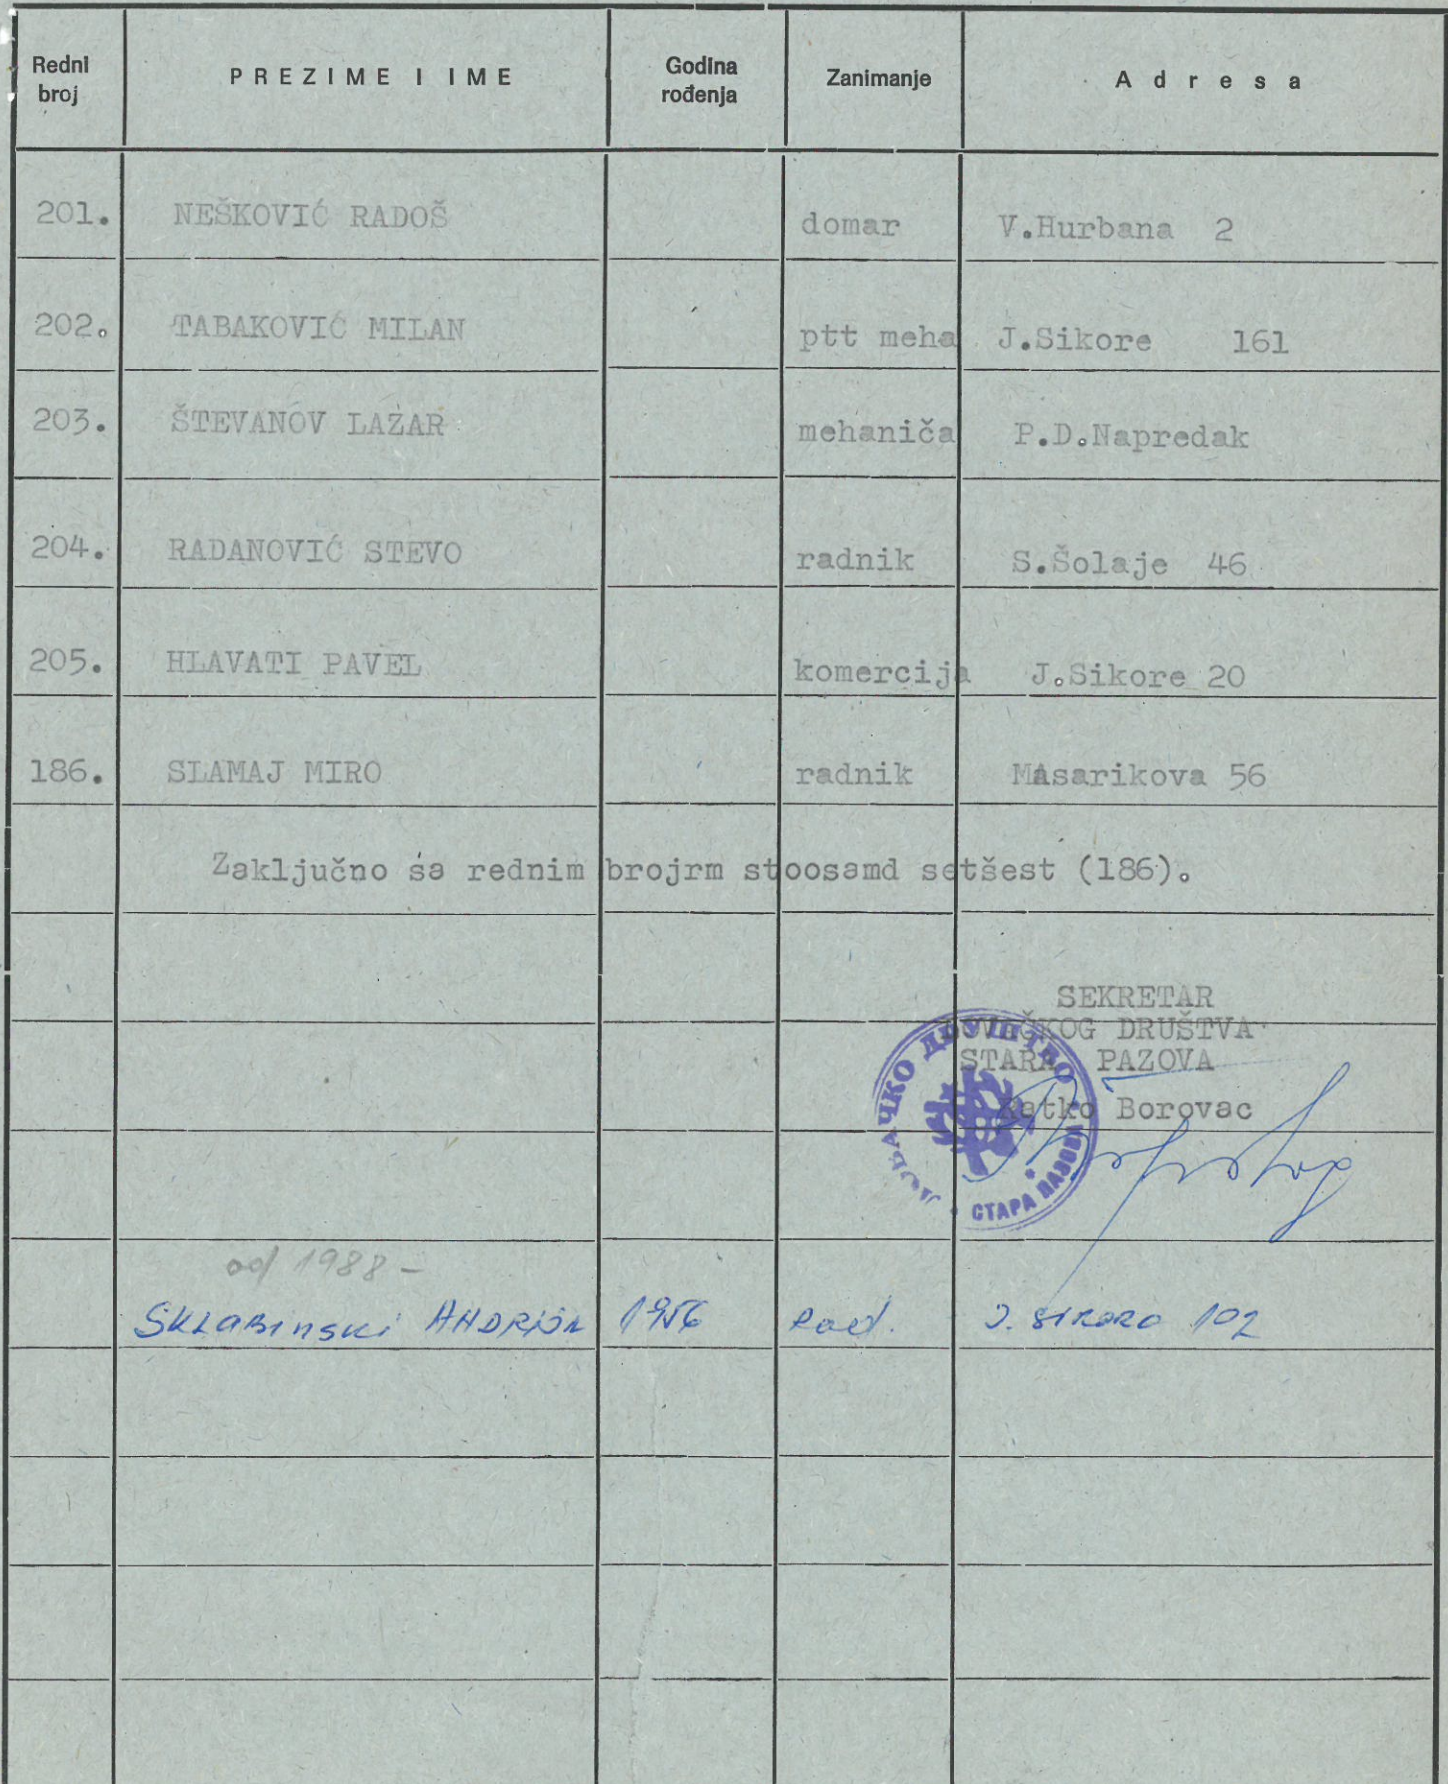 Redni broj PREZIME I IME Godina rođenja Zanimanje Adresa
201. NEŠKOVIĆ RADOŠ domar V.Hurbana 2
202. TABAKOVIĆ MILAN ptt meha J.Sikore 161
203. ŠTEVANOV LAZAR mehaniča P.D.Napredak
204. RADANOVIĆ STEVO radnik S.Šolaje 46
205. HLAVATI PAVEL komercija J.Sikore 20
186. SLAMAJ MIRO radnik Masarikova 56
Zaključno sa rednim brojrm stoosamd setšest (186).
SEKRETAR
LOVAČKOG DRUŠTVA
STARA PAZOVA
Ratko Borovac
ЛОВАЧКО ДРУШТВО
СТАРА ПАЗОВА
od 1988 -
SKLABINSKI ANDRIJA 1956 Rad. J. SIKORE 102